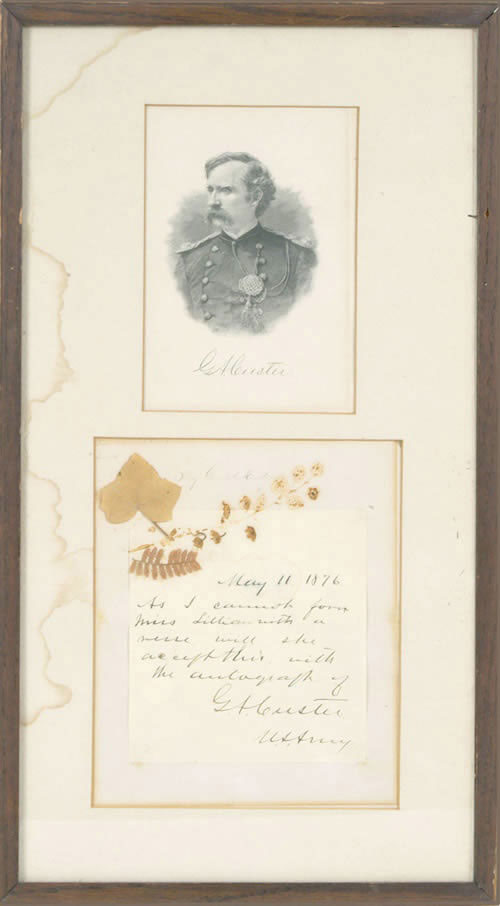 G A Custer
May 11 1876
As I cannot favor
Miss Lillian with a
verse will she
accept this with
the autograph of
G A Custer
U.S. Army